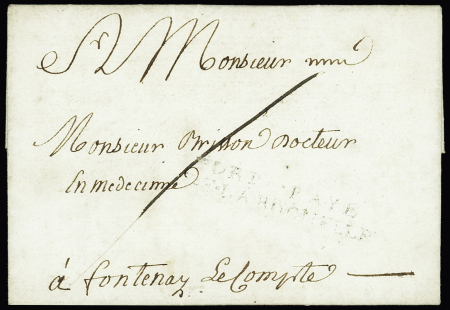 A Monsieur
Monsieur Brisson Docteur
En medecinne
PORT PAYE
LA ROCHELLE
à fontenay Le Compte